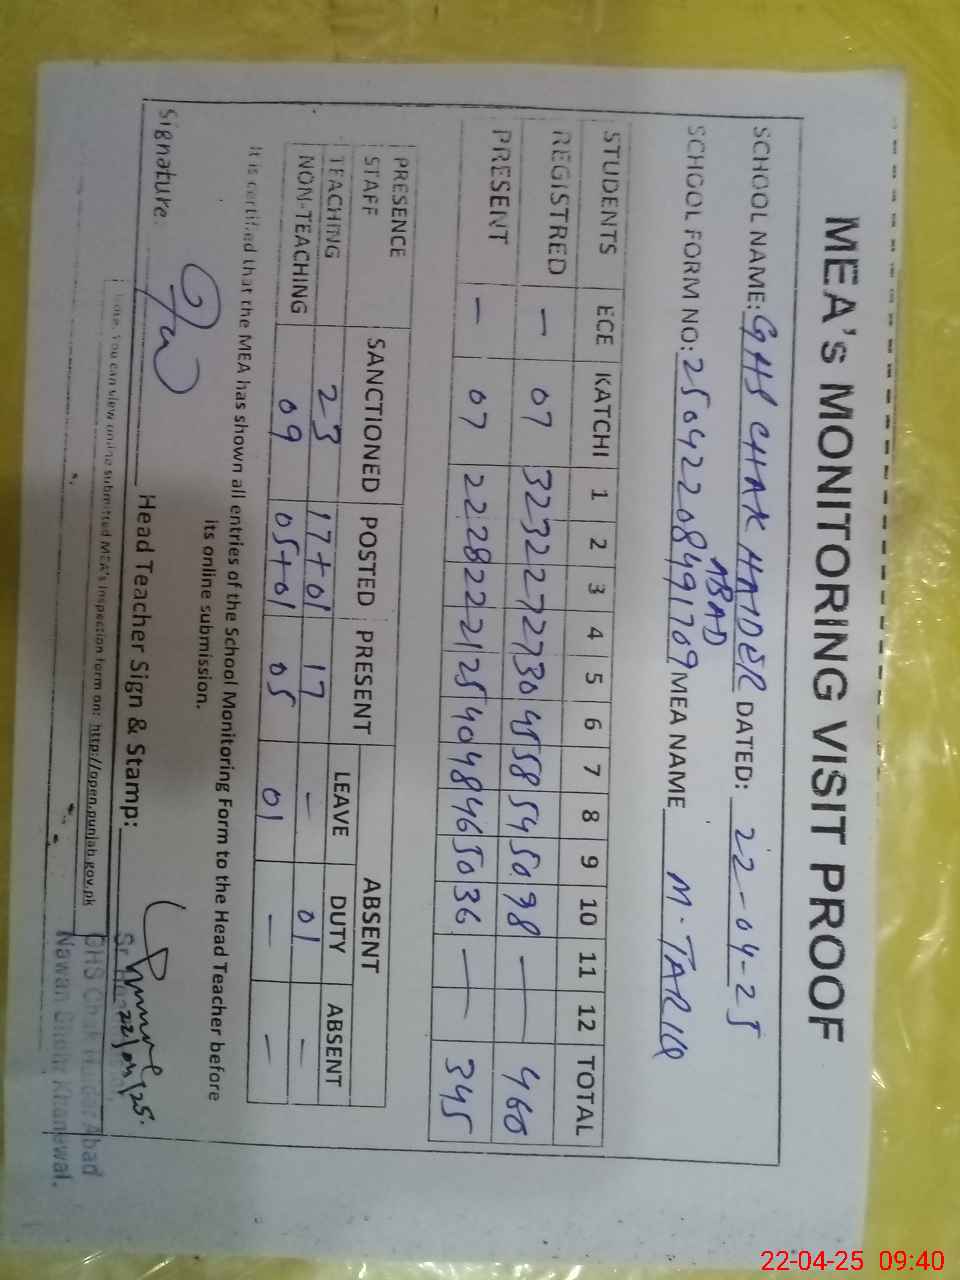 MEA's MONITORING VISIT PROOF
SCHOOL NAME: GHS CHAK HAIDER ABAD DATED: 22-04-25
SCHOOL FORM NO: 25042208491709 MEA NAME M. TARIQ
STUDENTS ECE KATCHI 1 2 3 4 5 6 7 8 9 10 11 12 TOTAL
REGISTRED — 07 32 32 27 27 30 45 58 54 50 98 — 460
PRESENT — 07 22 28 22 21 25 40 48 46 50 36 — 345
PRESENCE STAFF SANCTIONED POSTED PRESENT ABSENT
LEAVE DUTY ABSENT
TEACHING 23 17+01 17 — 01 —
NON-TEACHING 09 05+01 05 01 — —
It is certified that the MEA has shown all entries of the School Monitoring Form to the Head Teacher before
its online submission.
Signature: Head Teacher Sign & Stamp:
22/04/25.
Note: You can view online submitted MEA's inspection form on: http://open.punjab.gov.pk
GHS Chak Haider Abad
Nawan Shehr Khanewal.
22-04-25 09:40